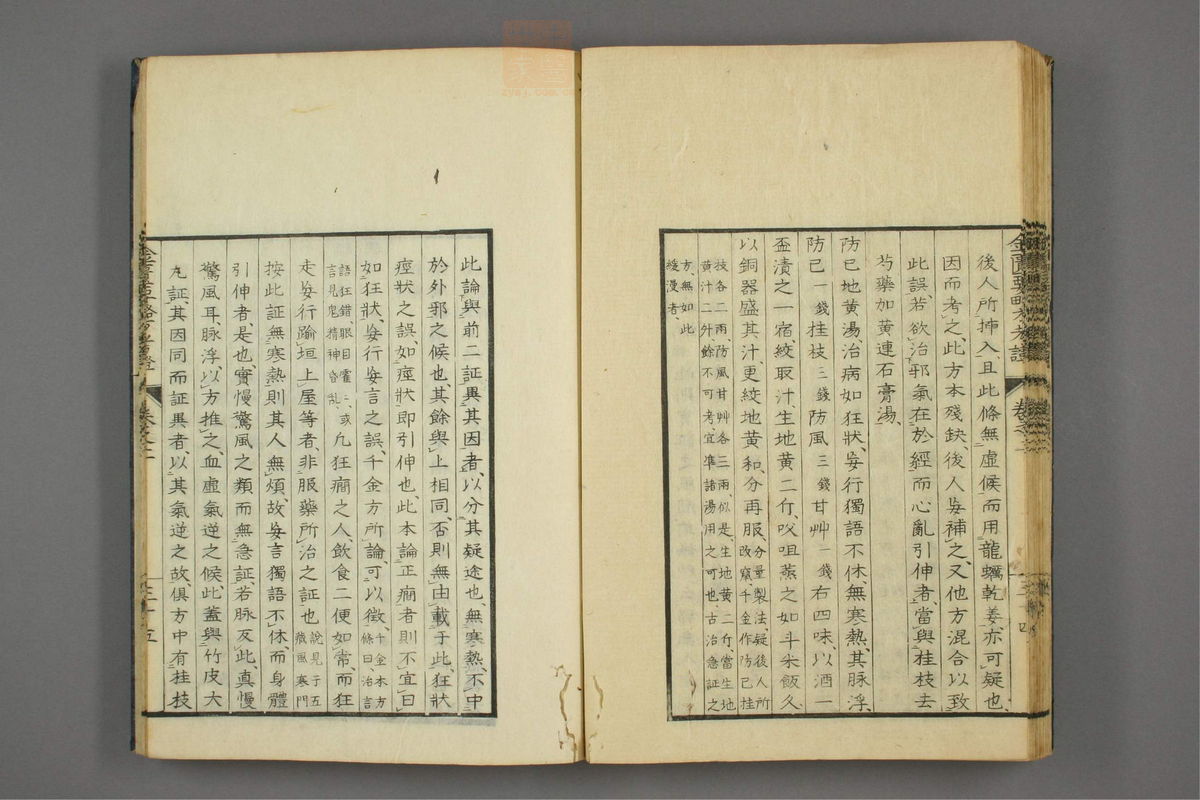 後人所挿入、且此條無虛候而用龍蠣乾姜亦可疑也、
因而考之、此方本殘缺、後人妄補之、又他方混合以致
此誤、若欲治邪氣在於經而心亂引伸者當與桂枝去
芍藥加黃連石膏湯、
防已地黃湯、治病如狂狀、妄行獨語不休、無寒熱、其脉浮、
防已一錢桂枝三錢防風三錢甘艸一錢右四味、以酒一
盃漬之一宿、絞取汁、生地黃二斤、㕮咀蒸之如斗米飯久
以銅器盛其汁、更絞地黃和、分再服、分量製法、疑後人所改竄、千金作防己桂
枝各二兩、防風甘艸各三兩、似是、生地黃二斤、當生地
黃汁二外餘不可考、宜準諸湯用之可也、古治急証之
方、無如此
緩漫者、
此論與前二証異其因者、以分其疑途也、無寒熱、不中
於外邪之候也、其餘與上相同、否則無由載于此、狂狀
痙狀之誤、如痙狀即引伸也、此本論正癇者則不宜曰
如狂狀、妄行妄言之誤、千金方所論、可以徵、千金本方條曰、治言
語狂錯、眼目霍〻、或
言見鬼、精神昏亂、
凢狂癇之人、飲食二便如常、而狂
走妄行踰垣上屋等者、非服藥所治之証也說見于五癈風寒門
按此証無寒熱則其人無煩、故妄言獨語不休、而身體
引伸者是也、實慢驚風之類而無急証、若脉反此、真慢
驚風耳、脉浮、以方推之、血虛氣逆之候、此蓋與竹皮大
丸証、其因同而証異者、以其氣逆之故、俱方中有桂枝